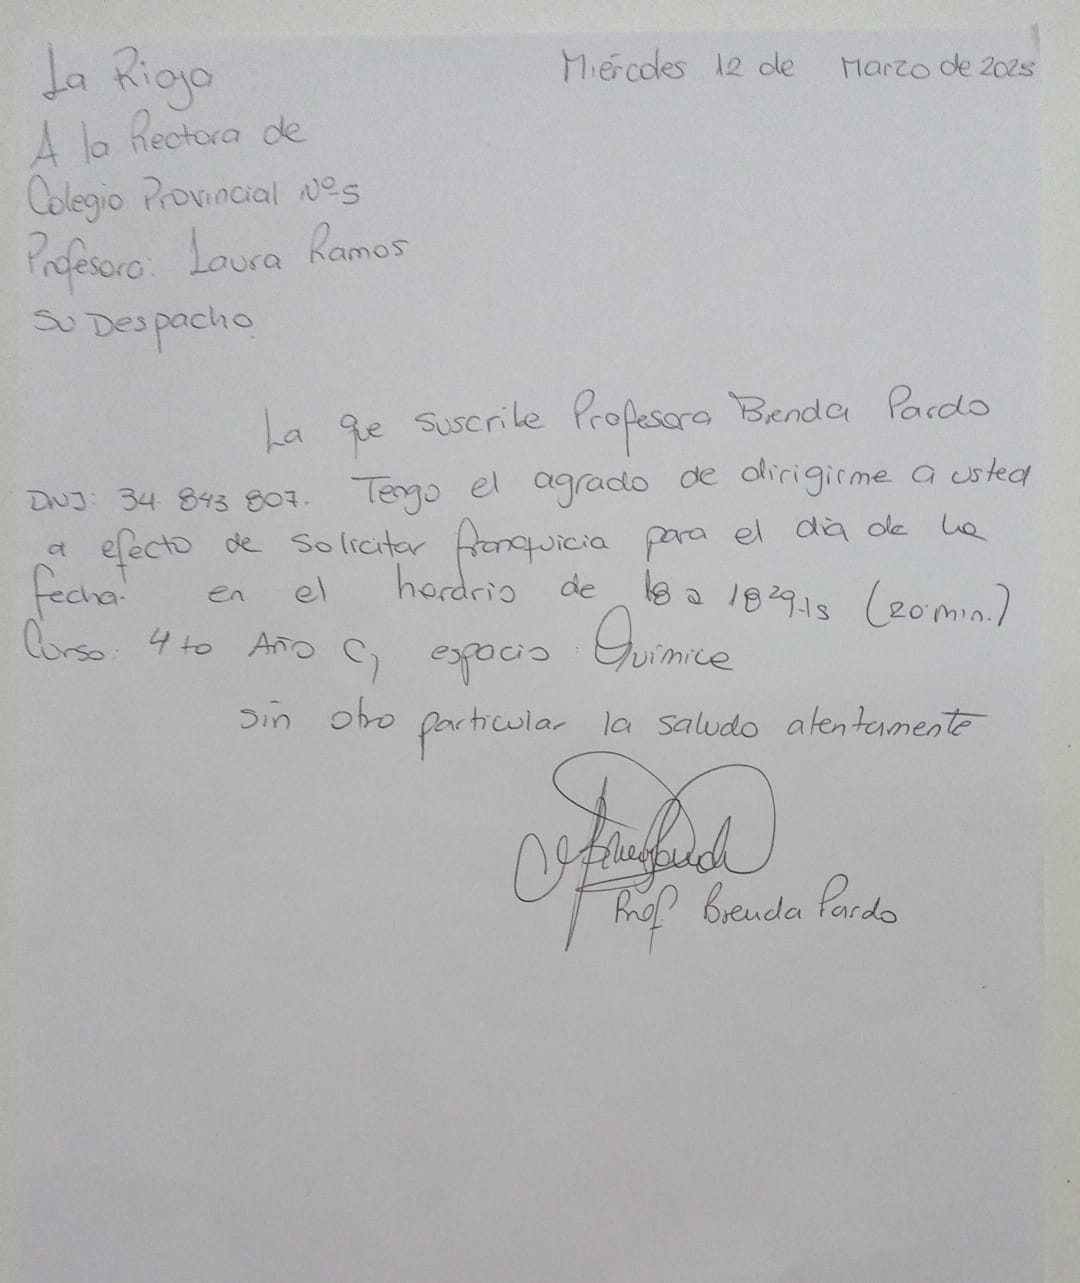 La Rioja Miércoles 12 de Marzo de 2025
A la Rectora de
Colegio Provincial Nº5
Profesora: Laura Ramos
Su Despacho.
La que suscribe Profesora Brenda Pardo
DNI: 34 843 807. Tengo el agrado de dirigirme a usted
a efecto de solicitar franquicia para el día de la
fecha. en el horario de 18 a (20 min.)
Curso: 4to Año C, espacio: Química
Sin otro particular la saludo atentamente
Prof Brenda Pardo